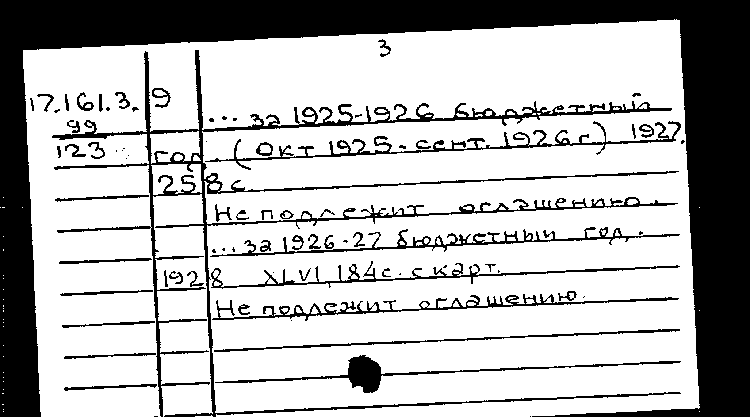 3
17.161.3. 9 ... за 1925-1926 бюджетный
99
123 год. (Окт 1925 - сент. 1926 г.) 1927.
258 с.
Не подлежит оглашению.
... за 1926-27 бюджетный год.
1928 XLVI, 184 с. с карт.
Не подлежит оглашению.